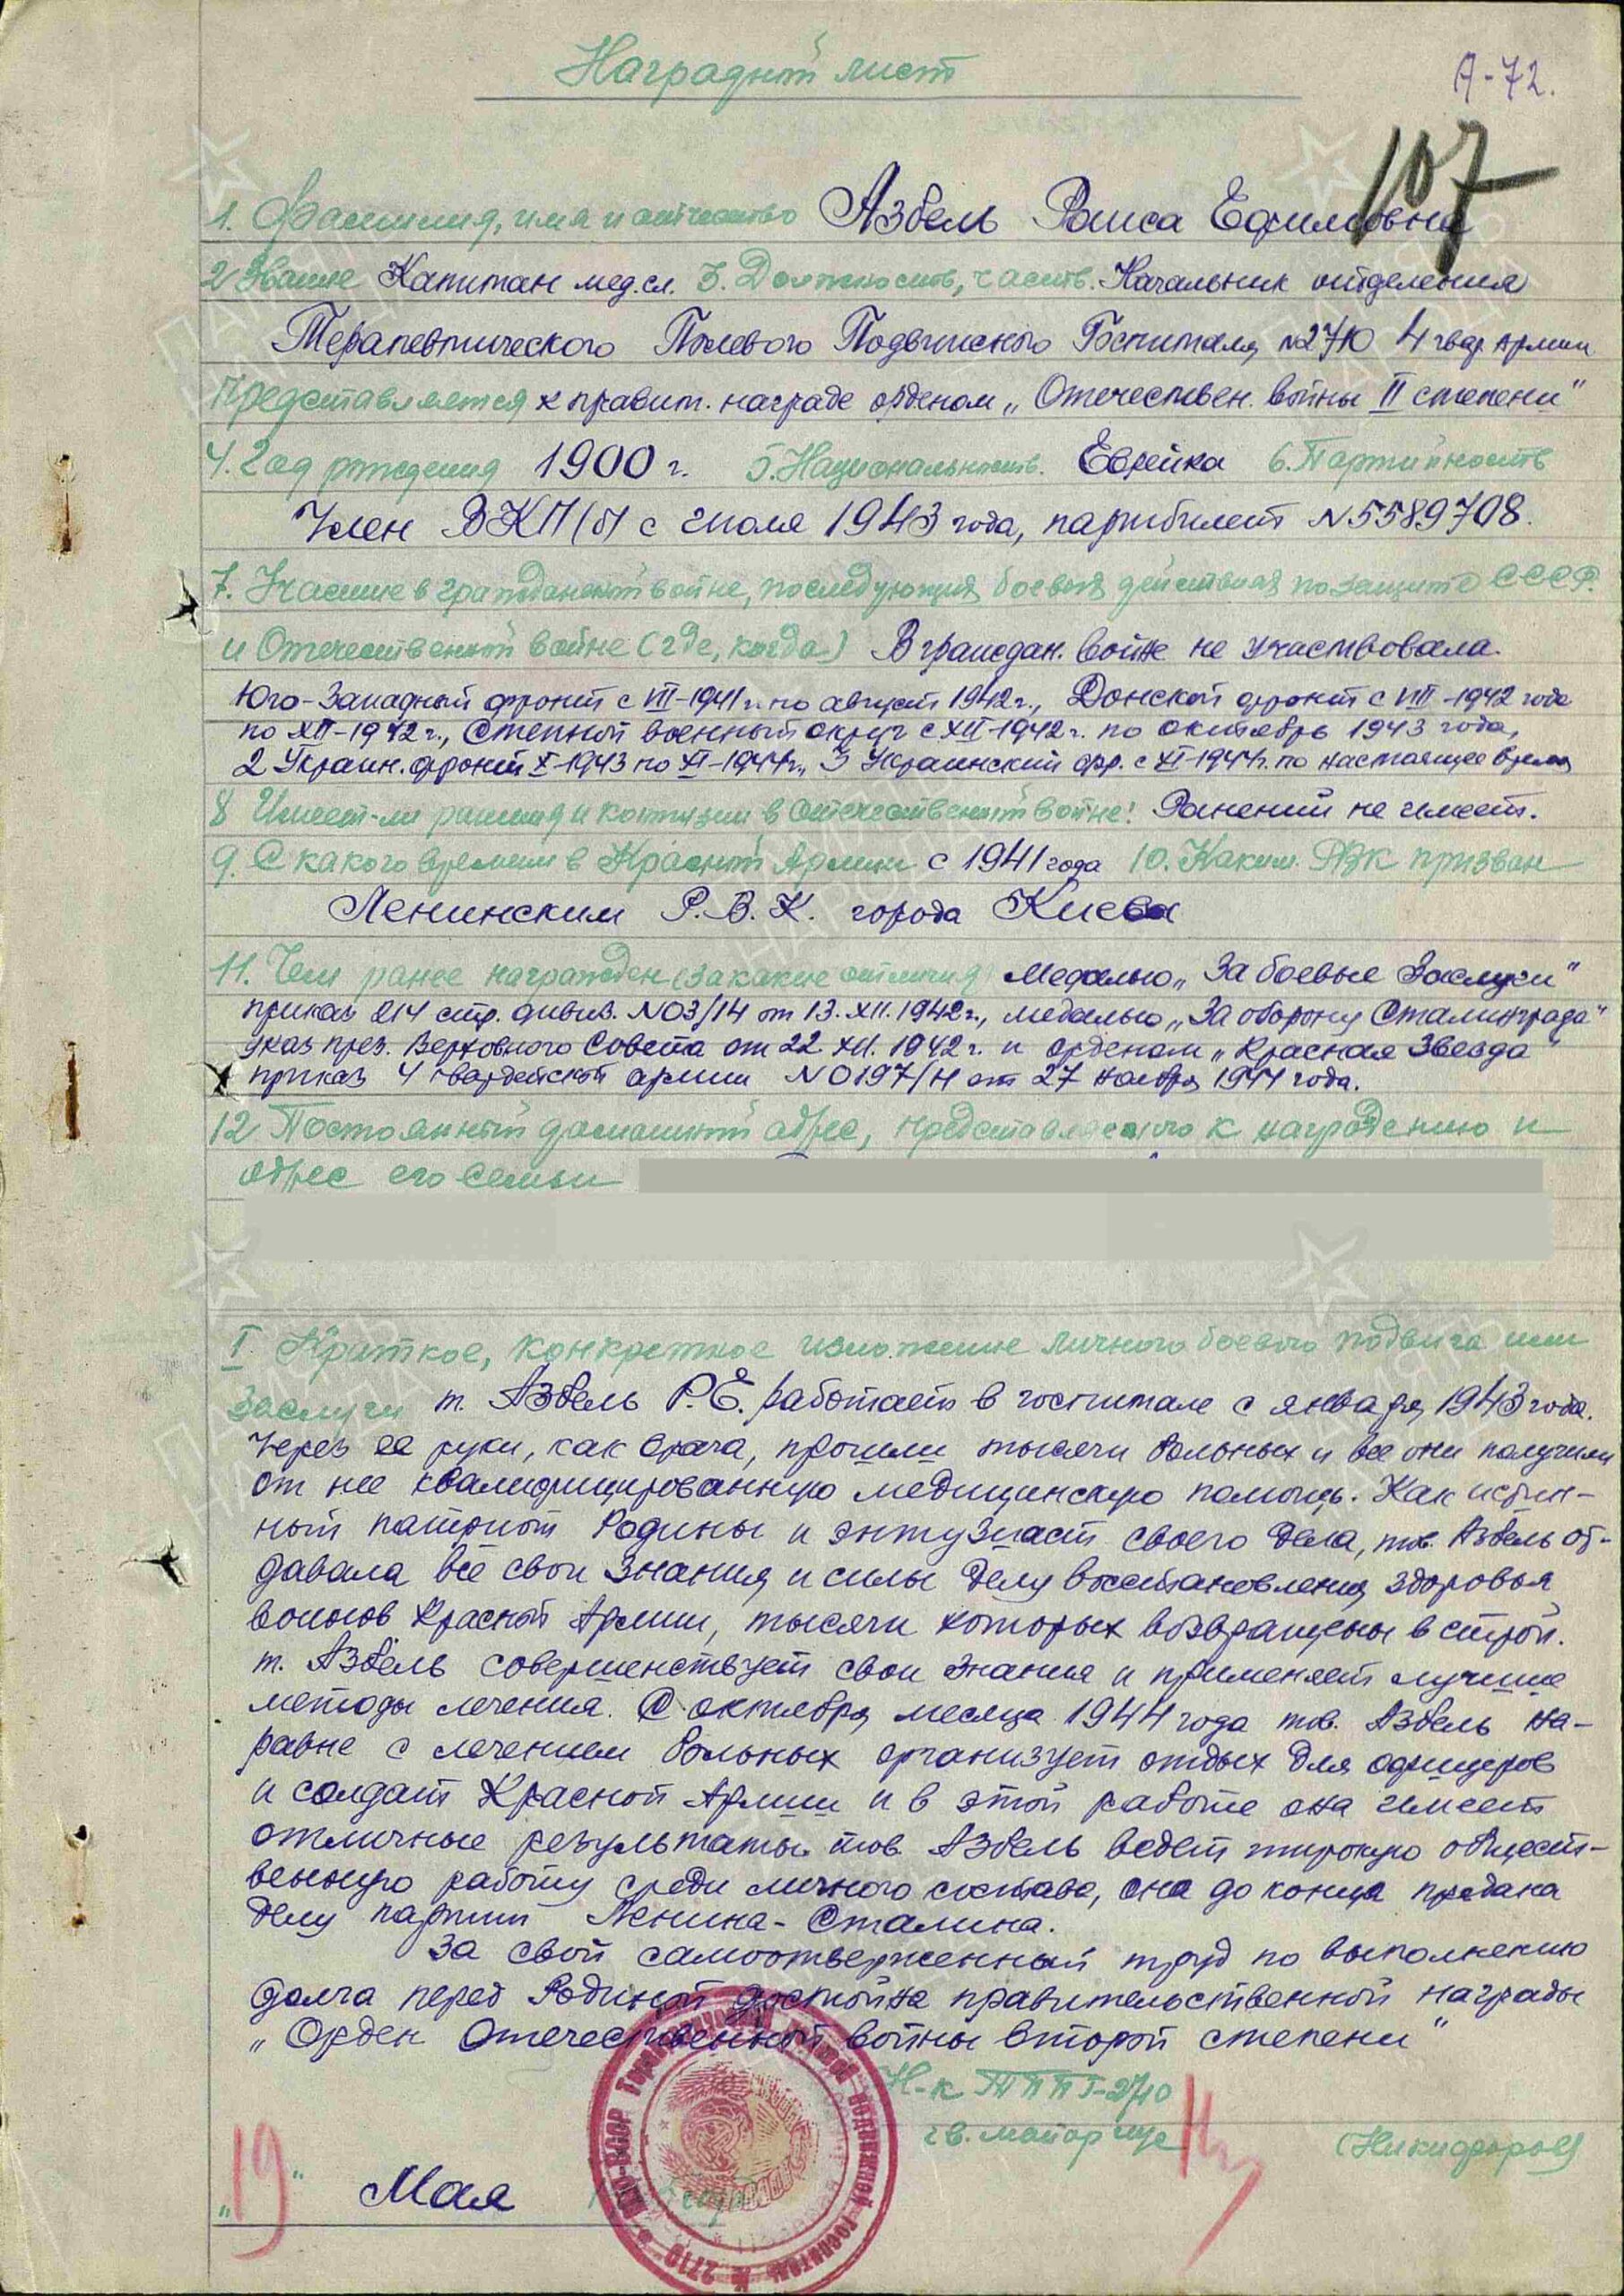 Наградной лист
А-72.
107
1. Фамилия, имя и отчество Азбель Раиса Ефимовна
2 Звание Капитан мед.сл. 3. Должность, часть. Начальник отделения
Терапевтического Полевого Подвижного Госпиталя №2710 4 гвар. Армии
Представляется к правит. награде орденом „Отечествен. войны II степени"
4. Год рождения 1900 г. 5. Национальность. Еврейка 6. Партийность
Член ВКП(б) с июля 1943 года, партбилет №5589708.
7. Участие в гражданской войне, последующих боевых действиях по защите СССР.
и Отечественной войне (где, когда) В граждан. войне не участвовала.
Юго-Западный фронт с VII-1941 г. по август 1942 г., Донской фронт с VIII-1942 года
по XII-1942 г., Степной военный округ с XII-1942 г. по октябрь 1943 года,
2 Украин. фронт X-1943 по XI-1944 г., 3 Украинский фр. с XI-1944 г. по настоящее время
8 Имеет-ли ранения и контузии в отечественной войне! Ранений не имеет.
9. С какого времени в Красной Армии с 1941 года 10. Каким РВК призван
Ленинским Р.В.К. города Киева
11. Чем ранее награжден (за какие отличия) Медалью „За боевые Заслуги"
приказ 214 стр. дивиз. №03/14 от 13.XII.1942 г., медалью „За оборону Сталинграда"
указ през. Верховного Совета от 22.XII.1942 г. и орденом „Красная Звезда"
приказ 4 гвардейской армии №0197/Н от 27 ноября 1944 года.
12 Постоянный домашний адрес, представляемого к награждению и
адрес его семьи
I Краткое, конкретное изложение личного боевого подвига или
заслуги т. Азбель Р.Е. работает в госпитале с января 1943 года.
Через ее руки, как врача, прошли тысячи больных и все они получили
от нее квалифицированную медицинскую помощь. Как истин-
ный патриот Родины и энтузиаст своего дела, тов. Азбель от-
давала все свои знания и силы делу восстановления здоровья
воинов Красной Армии, тысячи которых возвращены в строй.
т. Азбель совершенствует свои знания и применяет лучшие
методы лечения. С октября месяца 1944 года тов. Азбель на-
равне с лечением больных организует отдых для офицеров
и солдат Красной Армии и в этой работе она имеет
отличные результаты. тов. Азбель ведет широкую общест-
венную работу среди личного состава, она до конца предана
делу партии Ленина-Сталина.
За свой самоотверженный труд по выполнению
долга перед Родиной достойна правительственной награды
„Орден Отечественной войны второй степени"
Н-к ТППГ-2710
гв. майор м/с (Никифоров)
„19" Мая